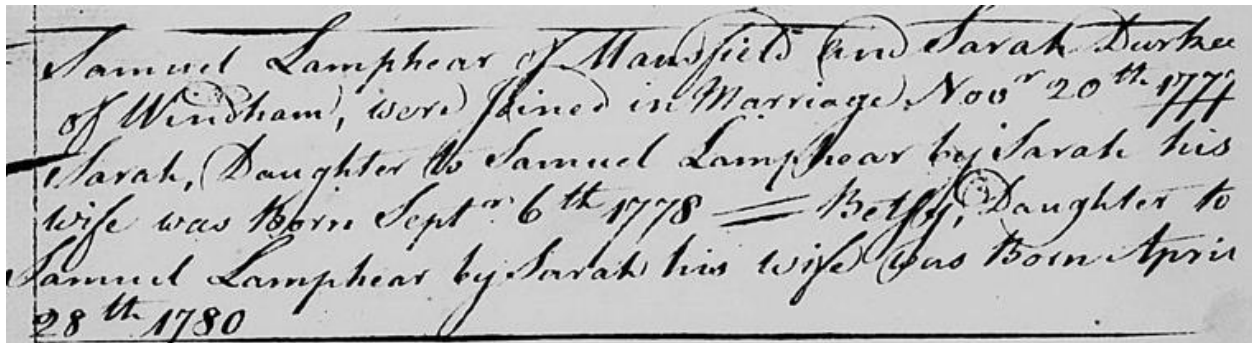 Samuel Lamphear of Mansfield and Sarah Durkee
of Windham, were Joined in Marriage Novr 20th 1777
Sarah, Daughter to Samuel Lamphear by Sarah his
wife was Born Septr 6th 1778 = Betsy, Daughter to
Samuel Lamphear by Sarah his wife was Born April
28th 1780